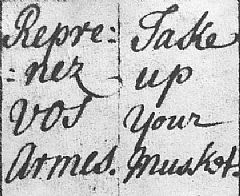 Repre=
=nez
vos
Armes.
Take
up
Your
Musket.